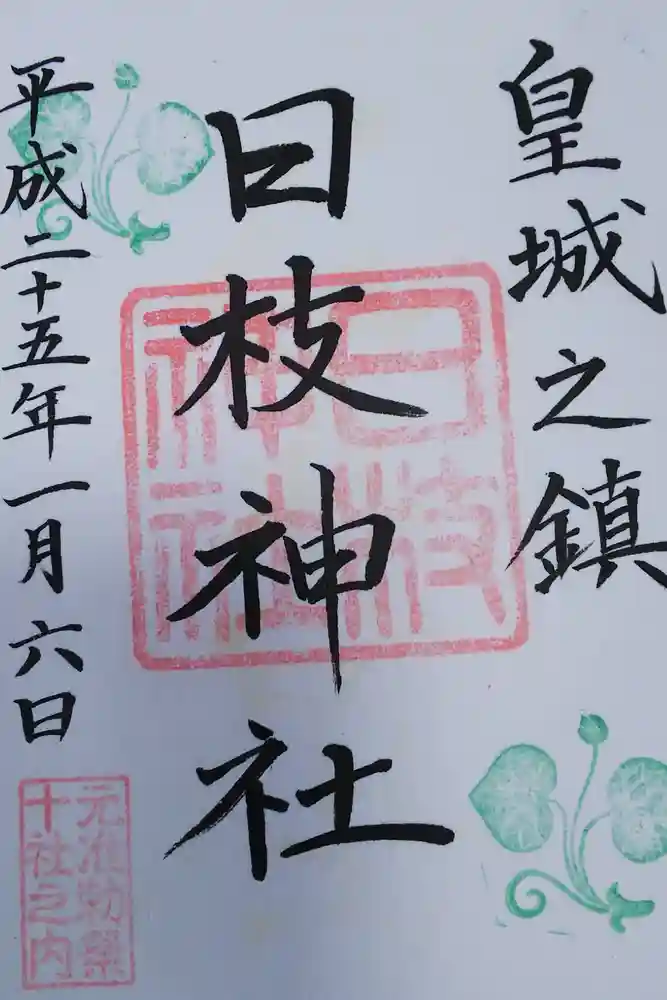 皇城之鎮
日枝神社
日枝神社
平成二十五年一月六日
元准勅祭
十社之内